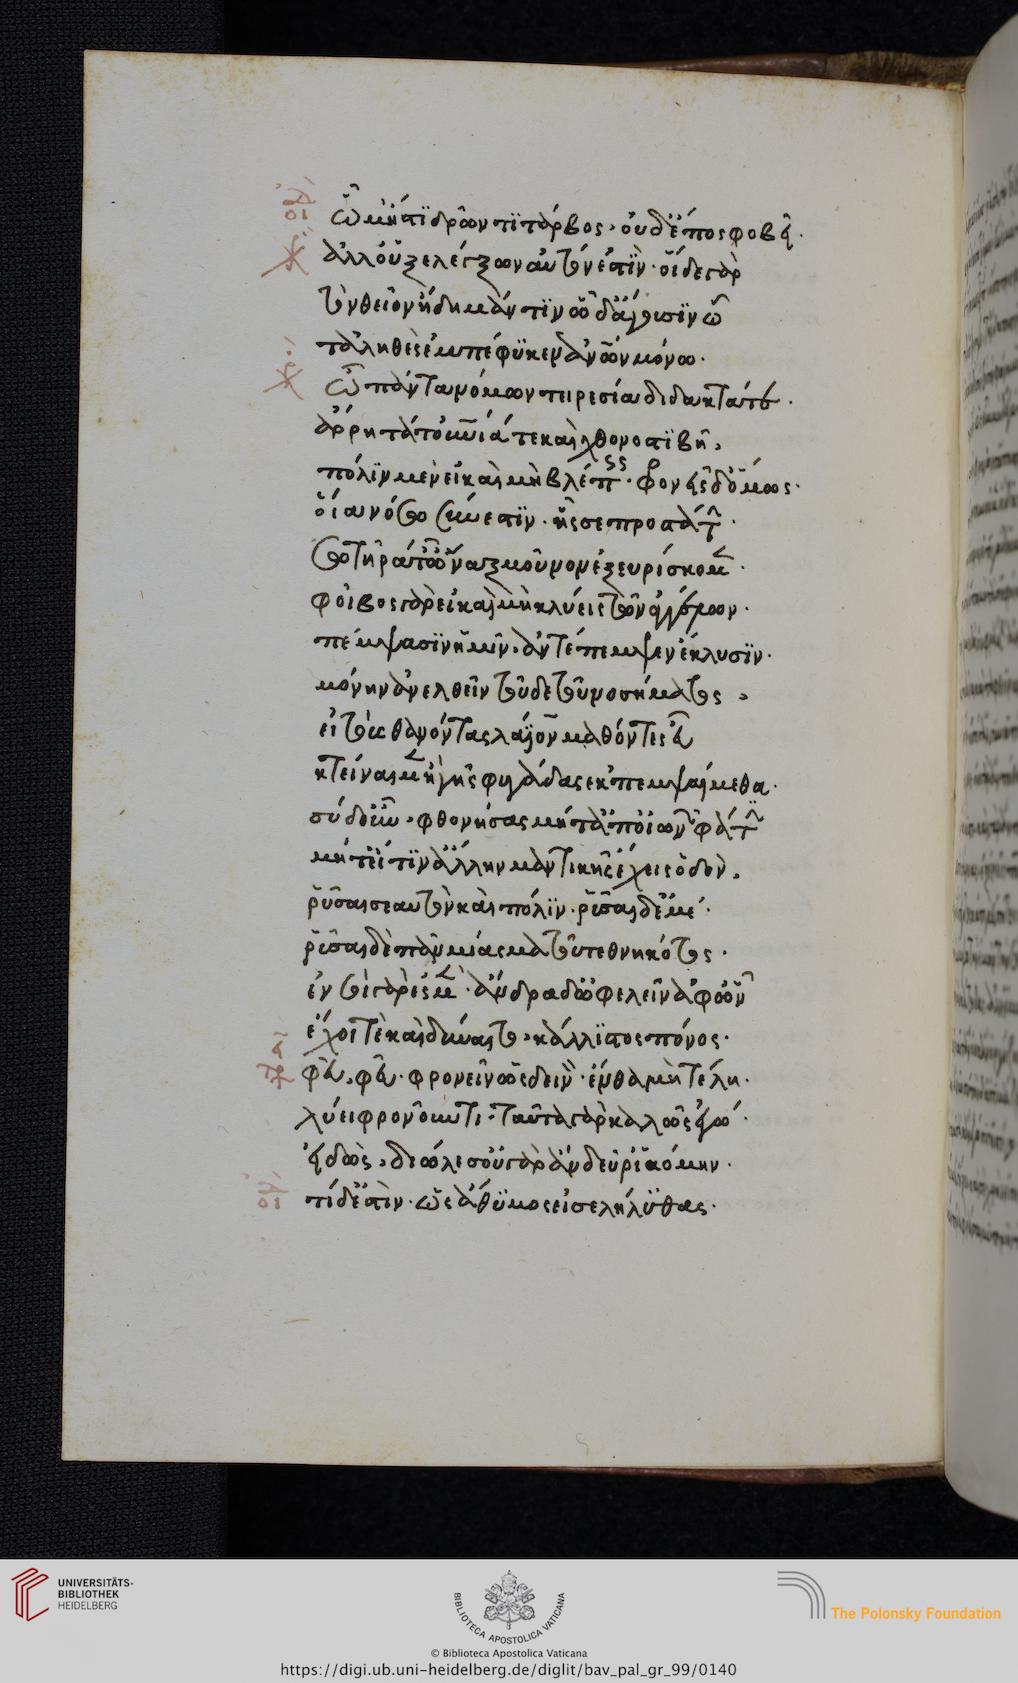 οἰ
ᾧ μή 'στι δρῶντι τάρβος, οὐδ' ἔπος φοβεῖ.
χο
ἀλλ' οὑξελέγξων αὐτὸν ἔστιν· οἵδε γὰρ
τὸν θεῖον ἤδη μάντιν ὧδ' ἄγουσιν ᾧ
τἀληθὲς ἐμπέφυκεν ἀνθρώπων μόνῳ.
χο
ὦ πάντα νωμῶν τειρεσία διδακτά τε.
ἄρρητά τ' οὐράνιά τε καὶ χθονοστιβῆ,
πόλιν μὲν εἰ καὶ μὴ βλέπεις, φρονεῖς δ' ὅμως.
οἵᾳ νόσῳ σύνεστιν· ἧς σε προστάτην
σωτῆρά τ' ὦναξ μοῦνον ἐξευρίσκομεν.
φοῖβος γὰρ εἰ καὶ μὴ κλύεις τῶν ἀγγέλων.
πέμψασιν ἡμῖν ἀντέπεμψεν ἔκλυσιν.
μόνην ἂν ἐλθεῖν τοῦδε τοῦ νοσήματος,
εἰ τοὺς κτανόντας λάϊον μαθόντες εὖ
κτείναιμεν ἢ γῆς φυγάδας ἐκπεμψαίμεθα.
σὺ δ' οὖν φθονήσας μήτ' ἀπ' οἰωνῶν φάτιν
μήτ' εἴ τιν' ἄλλην μαντικῆς ἔχεις ὁδόν,
ῥῦσαι σεαυτὸν καὶ πόλιν· ῥῦσαι δ' ἐμέ.
ῥῦσαι δὲ πᾶν μίασμα τοῦ τεθνηκότος.
ἐν σοὶ γάρ ἐσμεν· ἄνδρα δ' ὠφελεῖν ἀφ' ὧν
ἔχοι τε καὶ δύναιτο, κάλλιστος πόνος.
τειρ
φεῦ, φεῦ· φρονεῖν ὡς δεινὸν ἔνθα μὴ τέλη
λύει φρονοῦντι· ταῦτα γὰρ καλῶς ἐγὼ
εἰδὼς διώλεσ'· οὐ γὰρ ἂν δεῦρ' ἱκόμην.
οἰ
τί δ' ἔστιν; ὡς ἄθυμος εἰσελήλυθας.
UNIVERSITÄTS-
BIBLIOTHEK
HEIDELBERG
BIBLIOTECA APOSTOLICA VATICANA
The Polonsky Foundation
© Biblioteca Apostolica Vaticana
https://digi.ub.uni-heidelberg.de/diglit/bav_pal_gr_99/0140